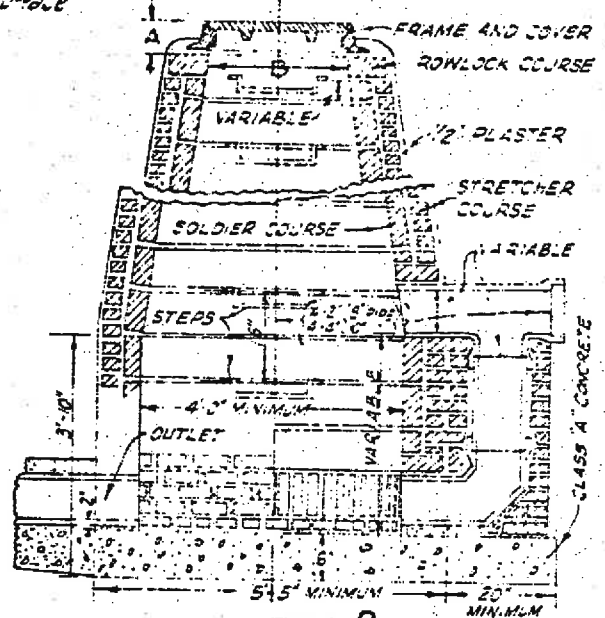 A
FRAME AND COVER
B
ROWLOCK COURSE
VARIABLE
1/2" PLASTER
STRETCHER
COURSE
SOLDIER COURSE
VARIABLE
STEPS
4'-0" MINIMUM
VARIABLE
3'-10"
OUTLET
CLASS "A" CONCRETE
5'-5" MINIMUM
20"
MINIMUM